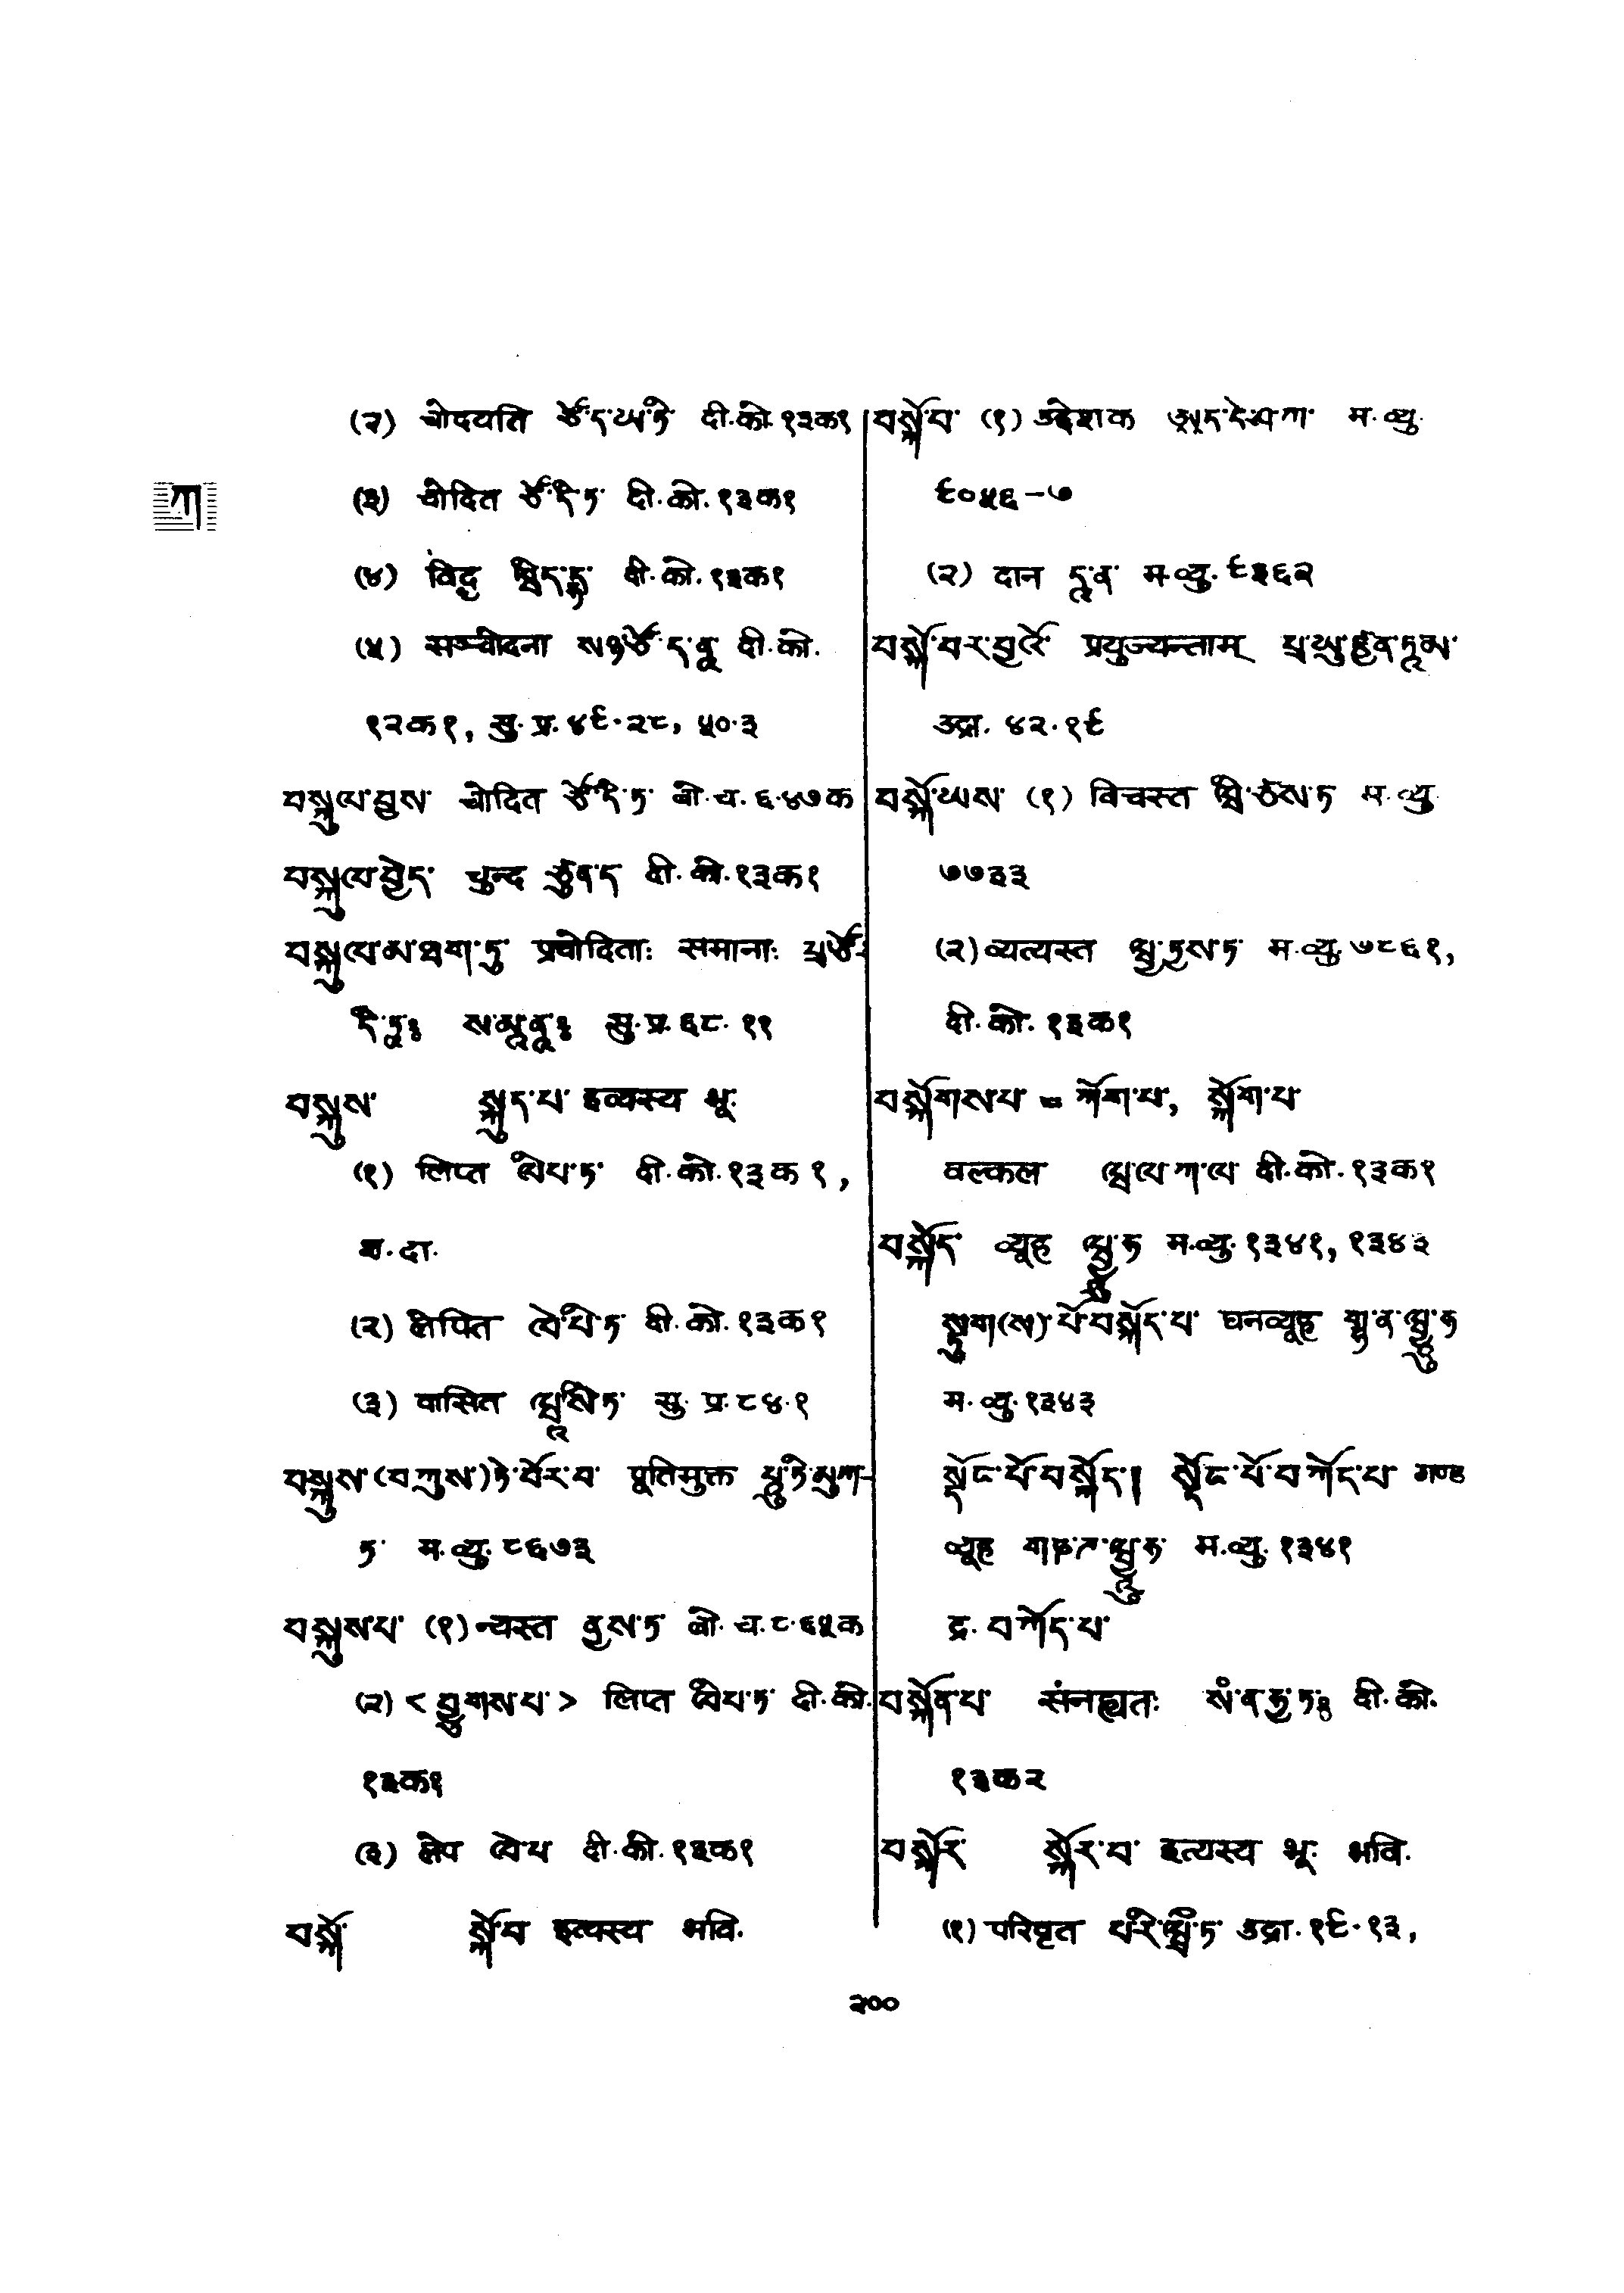 ཀ
(२) चोदयति ཙོ་ད་ཡ་ཏི་ दी.को.१३क१
(३) चोदित ཙོ་དི་ཏ་ दी.को.१३क१
(४) विद्ध दी.को.१३क१
(५) सञ्चोदना སཉྩོ་ད་ནཱ दी.को.
१२क१, सु.प्र.४९.२८, ५०.३
བསྐུལ་བྱས་ चोदित ཙོ་དི་ཏ་ बो.च.६.४७क
བསྐུལ་བྱེད་ चुन्द ཙུནྡ दी.को.१३क१
བསྐུལ་མ་ཐག་ཏུ་ प्रचोदिताः समानाः པྲ་ཙོ-
དི་ཏཱཿ ས་མཱ་ནཱཿ सु.प्र.६८.११
བསྐུས་ སྐུད་པ་ इत्यस्य भू.
(१) लिप्त ལིཔྟ་ दी.को.१३क१,
ब.दा.
(२) लेपित ལེ་པི་ཏ་ दी.को.१३क१
(३) वासित ཝཱ་སི་ཏ་ सु.प्र.८४.१
བསྐུས་(བཀུས་)ཏེ་བོར་བ་ पूतिमुक्त པཱུ་ཏི་མུཀ-
ཏ་ म.व्यु.८६७३
བསྐུས་པ་ (१) न्यस्त ནྱ་ས་ཏ बो.च.८.६५क
(२) <བྱུགས་པ་> लिप्त ལིཔ་ཏ दी.को.
१३क१
(३) लेप ལེ་པ दी.को.१३क१
བསྐོ་ སྐོ་བ इत्यस्य भवि.
བསྐོ་བ་ (१) उद्देशक ཨུད་དེ་ཤ་ཀ་ म.व्यु.
९०५६-७
(२) दान དཱ་ན་ म.व्यु.९३६२
བསྐོ་བར་བྱའོ་ प्रयुज्यन्ताम् པྲ་ཡུ་ཛྱན་ཏཱམ་
उद्रा.४२.१९
བསྐོ་ཡས་ (१) विचस्त ཝི་ཙས་ཏ म.व्यु.
७७३३
(२) व्यत्यस्त ཝྱ་ཏྱས་ཏ་ म.व्यु.७८६१,
दी.को.१३क१
བསྐོགས་པ་ = ཀོག་པ་, སྐོག་པ
वल्कल ཝལ་ཀ་ལ दी.को.१३क१
བསྐོད་ व्यूह ཝྱཱུ་ཧ म.व्यु.१३४१, १३४३
སྟུག(ས)་པོ་བསྐོད་པ་ घनव्यूह གྷ་ན་ཝྱཱུ་ཧ
म.व्यु.१३४३
སྡོང་པོ་བསྐོད། སྡོང་པོ་བཀོད་པ गण्ड
व्यूह གཎྜ་ཝྱཱུ་ཧ་ म.व्यु.१३४१
द्र. བཀོད་པ་
བསྐོན་པ་ संनह्यतः སཾ་ན་ཧྱ་ཏཿ दी.को.
१३क२
བསྐོར་ སྐོར་བ་ इत्यस्य भू. भवि.
(१) परिवृत པ་རི་ཝྲྀ་ཏ उद्रा.१९.१३,
२००